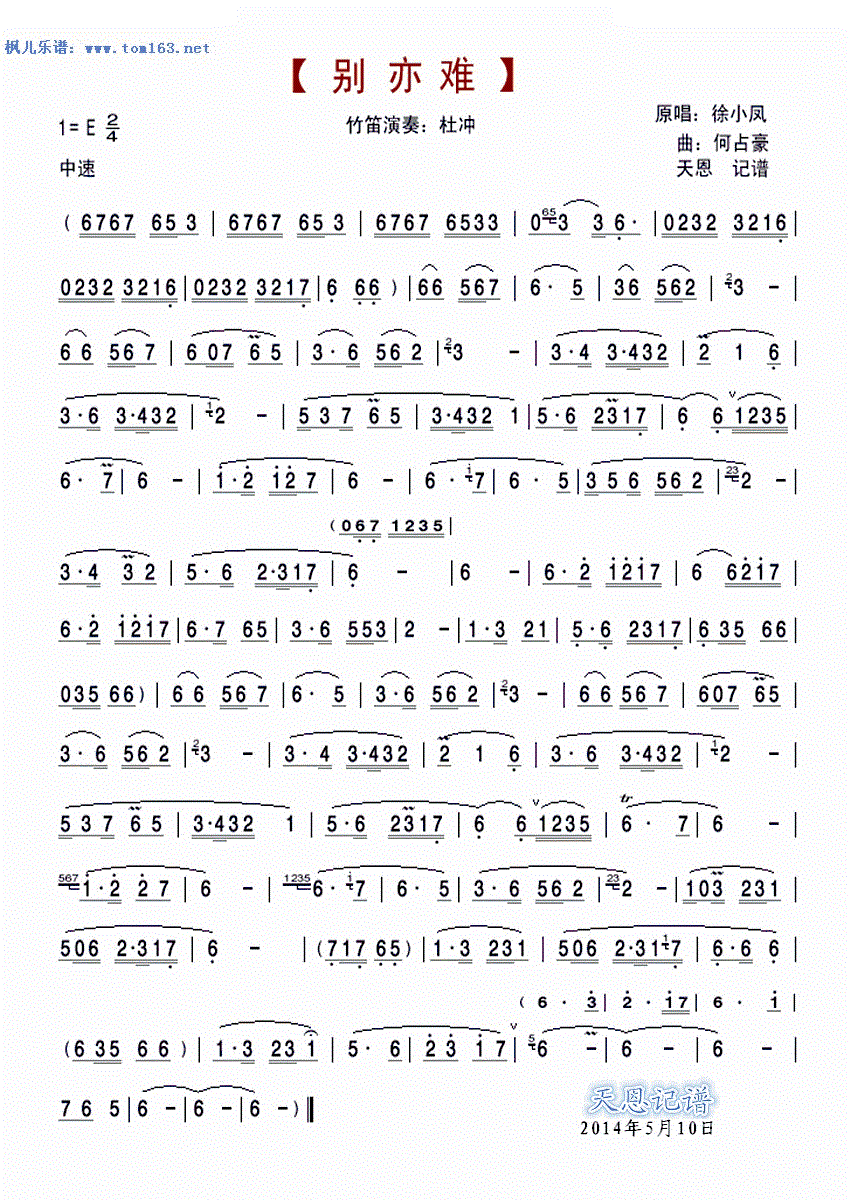 枫儿乐谱：www.tom163.net
【 别 亦 难 】
1= E 2/4
竹笛演奏：杜冲
原唱：徐小凤
曲：何占豪
中速
天恩 记谱
( 6767 65 3 | 6767 65 3 | 6767 6533 | 0 65 3 3 6· | 0232 3216 |
0232 3216 | 0232 3217 | 6 66 ) | 66 567 | 6· 5 | 36 562 | 2 3 - |
6 6 56 7 | 6 07 6 5 | 3·6 56 2 | 2 3 - | 3·4 3·432 | 2 1 6 |
3·6 3·432 | 1 2 - | 5 3 7 6 5 | 3·432 1 | 5·6 2317 | 6 6 v 1235 |
6· 7 | 6 - | 1·2 12 7 | 6 - | 6· i 7 | 6· 5 | 3 5 6 562 | 23 2 - |
( 067 1235 |
3·4 3 2 | 5·6 2·317 | 6 - | 6 - | 6·2 1217 | 6 6217 |
6·2 1217 | 6·7 65 | 3·6 553 | 2 - | 1·3 21 | 5·6 2317 | 6 35 66 |
035 66 ) | 6 6 56 7 | 6· 5 | 3·6 56 2 | 2 3 - | 6 6 56 7 | 607 65 |
3·6 56 2 | 2 3 - | 3·4 3·432 | 2 1 6 | 3·6 3·432 | 1 2 - |
5 3 7 6 5 | 3·432 1 | 5·6 2317 | 6 6 v 1235 | tr 6· 7 | 6 - |
567 1·2 2 7 | 6 - | 1235 6· i 7 | 6· 5 | 3·6 56 2 | 23 2 - | 103 231 |
506 2·317 | 6 - | ( 717 65 ) | 1·3 231 | 506 2·31 1 7 | 6·6 6 |
( 6· 3 | 2·17 | 6· 1 |
( 6 35 6 6 ) | 1·3 23 1 | 5· 6 | 2 3 1 7 v | 5 6 - | 6 - | 6 - |
7 6 5 | 6 - | 6 - | 6 - ) ‖
天恩记谱
2014年5月10日